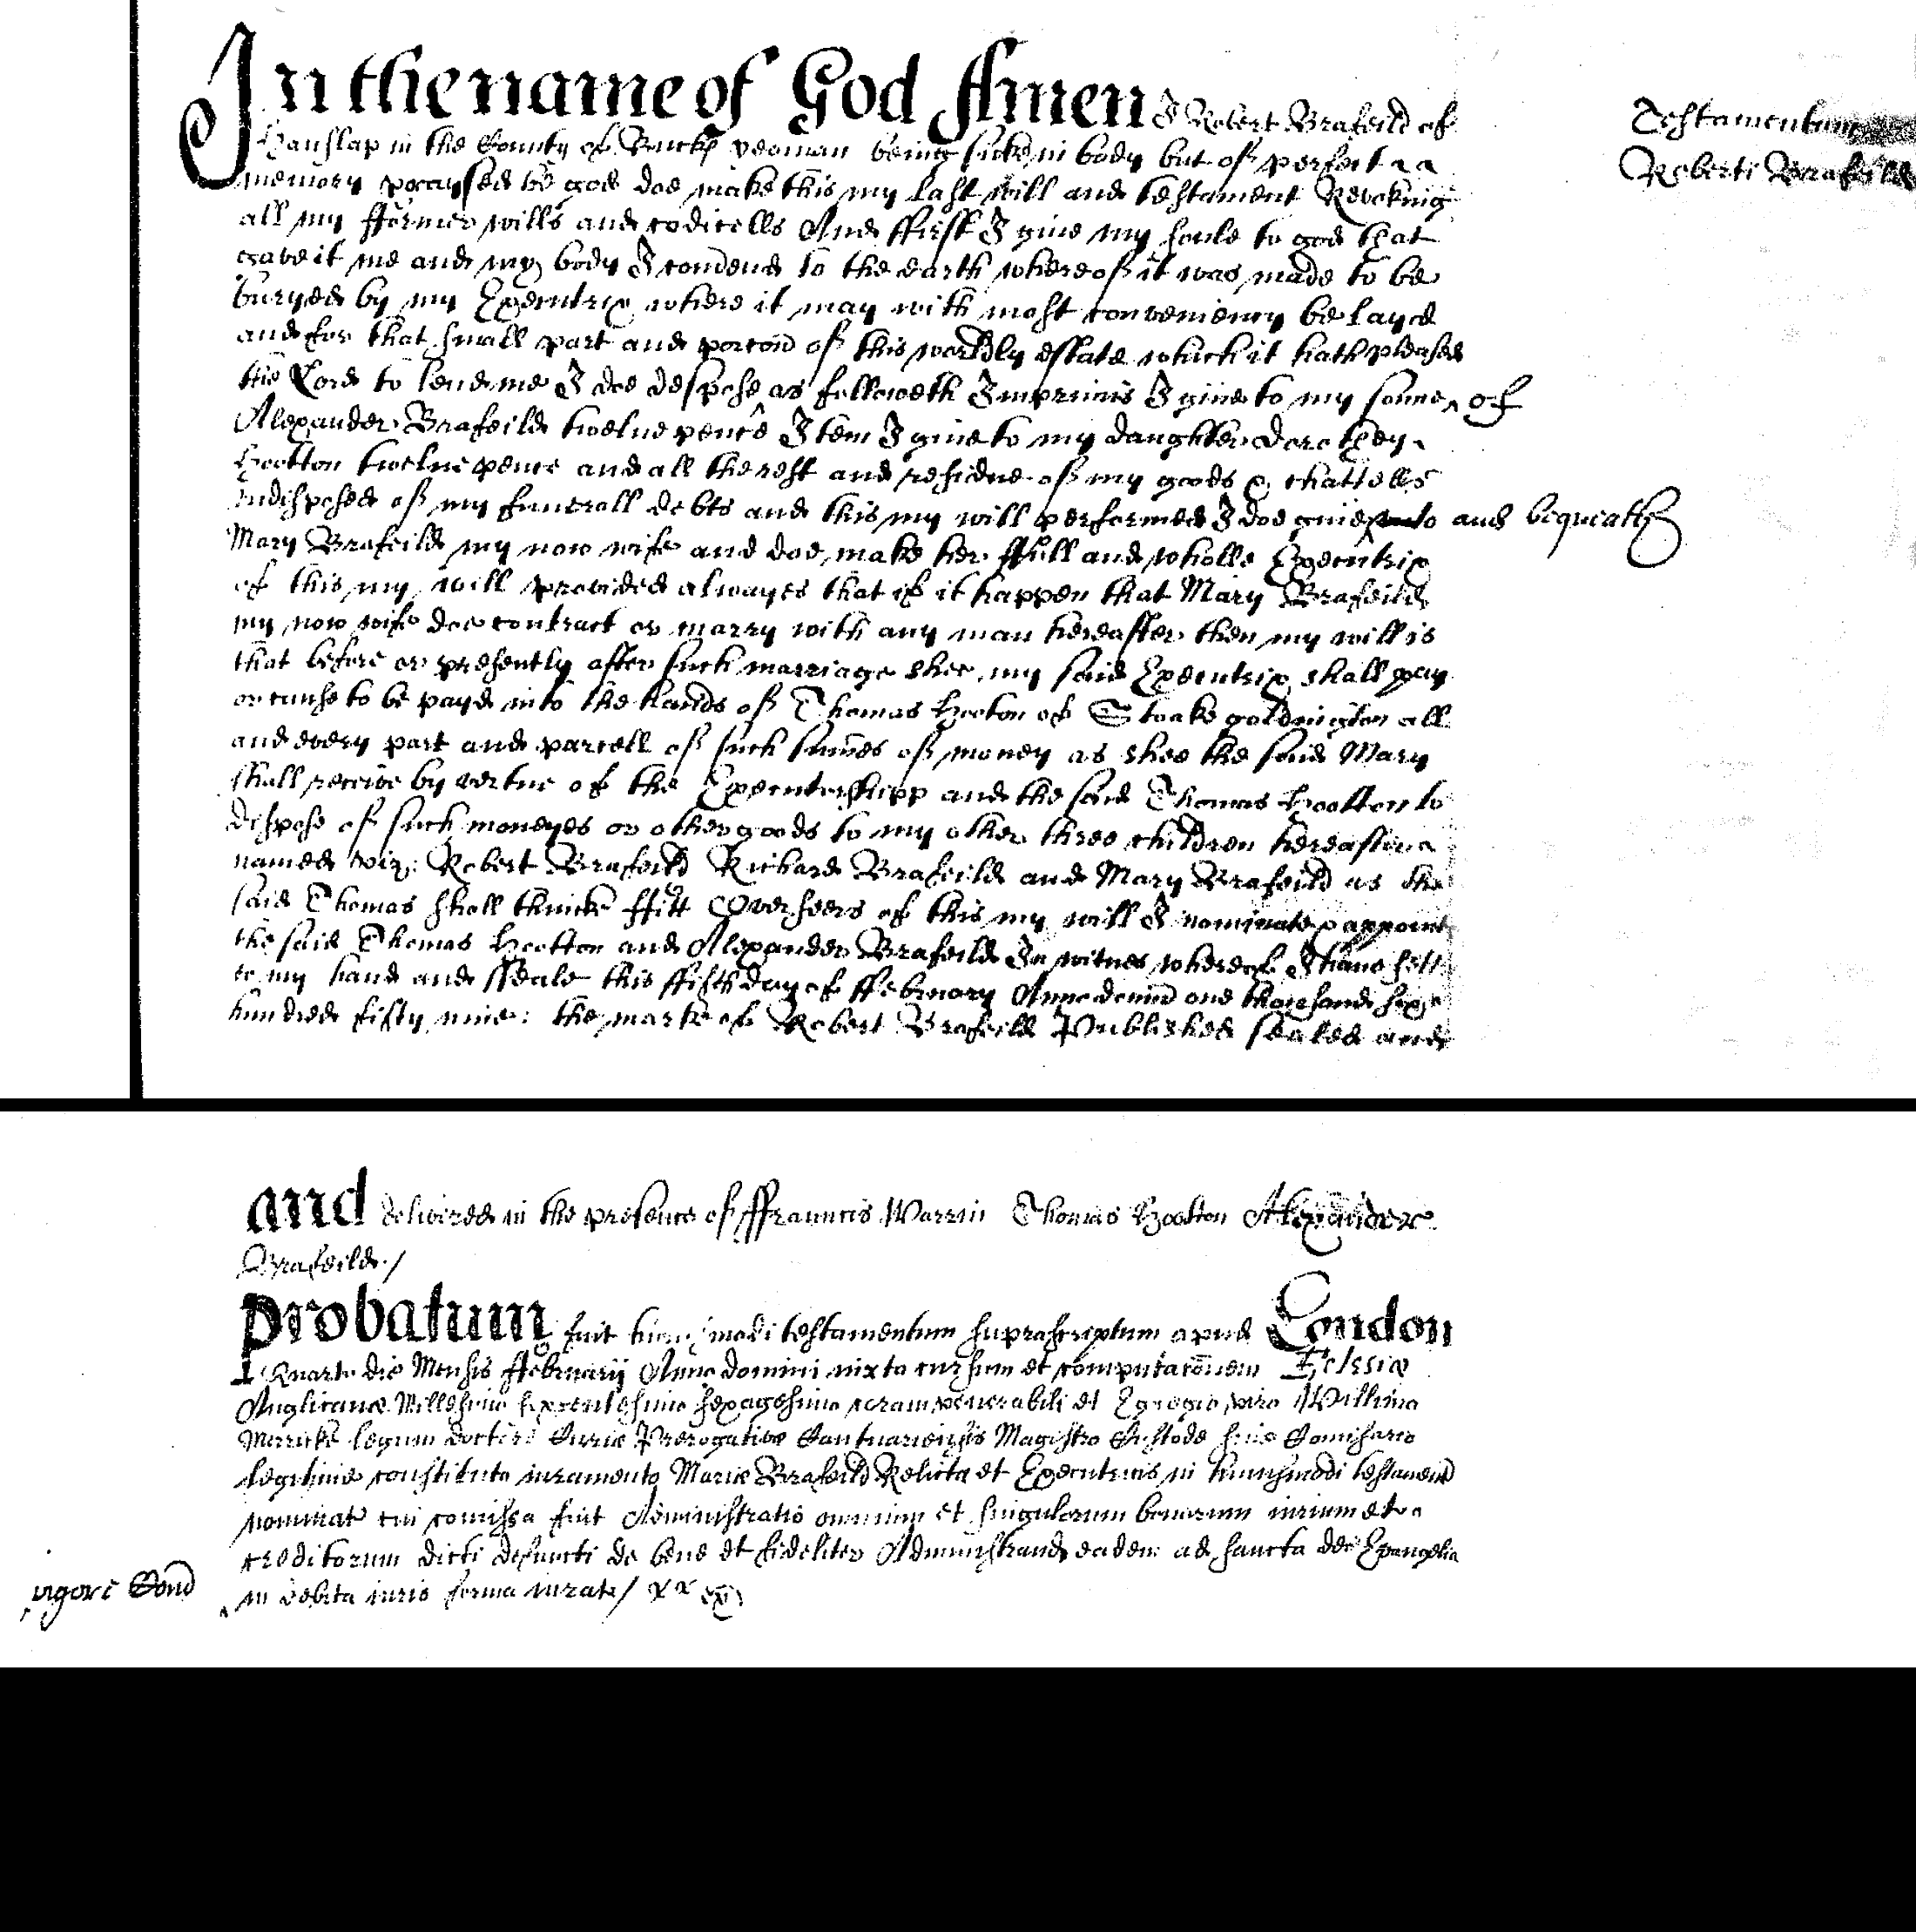 In the name of God Amen I Robert Brafeild of
Hanslap in the County of Buck yeoman being sicke in body but of perfect
memory praysed be god doe make this my last will and testament Revoking
all my fformer wills and codicells And ffirst I give my soule to god that
gave it me and my body I comend to the earth whereof it was made to be
buryed by my Executrix where it may with most conveniency be layed
and for that small part and porcon of this worldly estate which it hath pleased
the Lord to lend me I doe dispose as followeth Imprimis I give to my sonne of
Alexander Brafeild twelve pence Item I give to my daughter Dorothey
Hootton twelve pence and all the rest and residue of my goods & chattells
undisposed of my funerall debts and this my will performed I doe give unto and bequeath
Mary Brafeild my now wife and doe make her ffull and wholle Executrix
of this my will provided alwayes that if it happen that Mary Brafeild
my now wife doe contract or marry with any man hereafter then my will is
that before or presently after such marriage shee my said Executrix shall pay
or cause to be payd into the hands of Thomas Hooton of Stoake goldington all
and every part and parcell of such summes of money as shee the said Mary
shall receive by vertue of the Executorshipp and the said Thomas Hootton to
dispose of such moneyes or other goods to my other three children hereafter
named viz: Robert Brafeild Richard Brafeild and Mary Brafeild as the
said Thomas shall thincke ffitt Overseers of this my will I nominate & appoint
the said Thomas Hootton and Alexander Brafeild In witnes whereof I have sett
to my hand and sseale this ffifth day of ffebruary Anno domini one thousand six
hundred fifty nine: the marke of Robert Brafeild Published sealed and
Testamentum
Roberti Brafeild
and delivered in the presence of ffrauncis Warrin Thomas Hootton Alexander
Brafeild./
Probatum fuit huiusmodi testamentum suprascriptum apud London
Quarto die Mensis ffebruarij Anno domini iuxta cursum et computaconem Eclessiæ
Anglicanæ Millesimo sexcentesimo sexagesimo coram venerabili et Egregio viro Willimo
Merricke legum doctore Curiæ Prerogativæ Cantuariensis Magistro Custode sive Comissario
legitime constituto iuramento Mariæ Brafeild Relictæ et Executricis in huiusmodi testamento
nominat cui comissa fuit Administratio omnium et singulorum bonorum iurium et
creditorum dicti defuncti de bene et fideliter Administrand eadem ad sancta dei Evangelia
vigore Comd in debita iuris forma iurate/